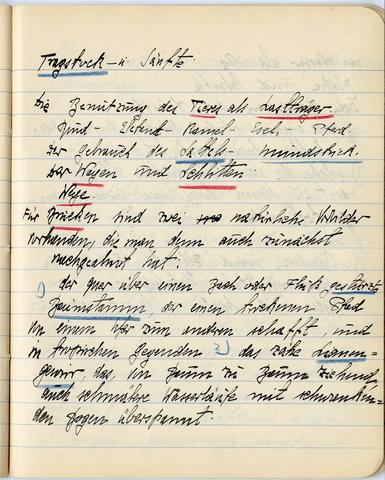 Tragstock – u. Sänfte.
Die Benutzung des Tieres als Lastträger.
Hund – Elefent – Kamel – Esel – Pferd.
Der Gebrauch des Sattels – Mundstück.
Der Wagen und Schlitten.
Wege.
Für Brücken sind zwei natürliche Vorbilder
vorhanden, die man denn auch zunächst
nachgeahmt hat:
1) der quer über einen Bach oder Fluß gestürzte
Baumstamm, der einen trockenen Pfad
von einem Ufer zum anderen schafft, und
in tropischen Gegenden 2) das zähe Lianen-
gewirr, das, von Baum zu Baum ziehend,
auch schmälere Wasserläufe mit schwanken-
den Bogen überspannt.